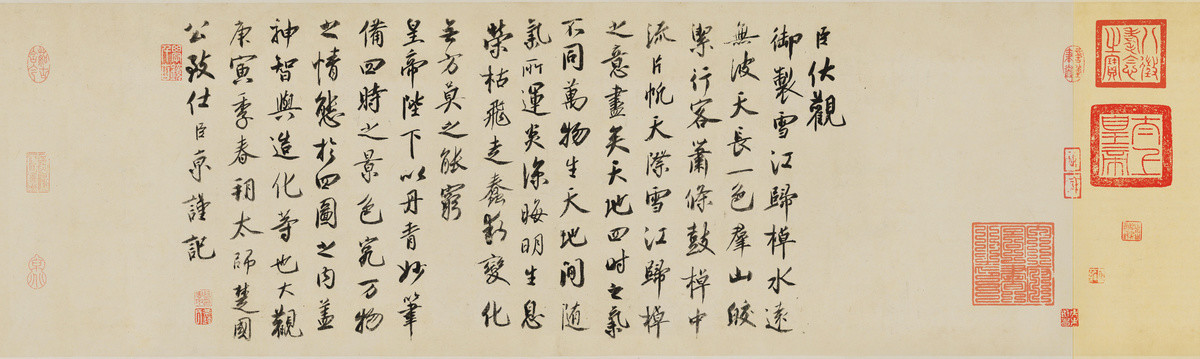 臣伏觀
御製雪江歸棹水遠
無波天長一色羣山皎
潔行客蕭條鼓棹中
流片帆天際雪江歸棹
之意盡矣天地四時之氣
不同萬物生天地間隨
氣所運炎涼晦明生息
榮枯飛走蠢動變化
無方莫之能窮
皇帝陛下以丹青妙筆
備四時之景色究萬物
之情態於四圖之内蓋
神智與造化等也大觀
庚寅季春朔太師楚國
公致仕臣京謹記
八徵耄念之寶
太上皇帝